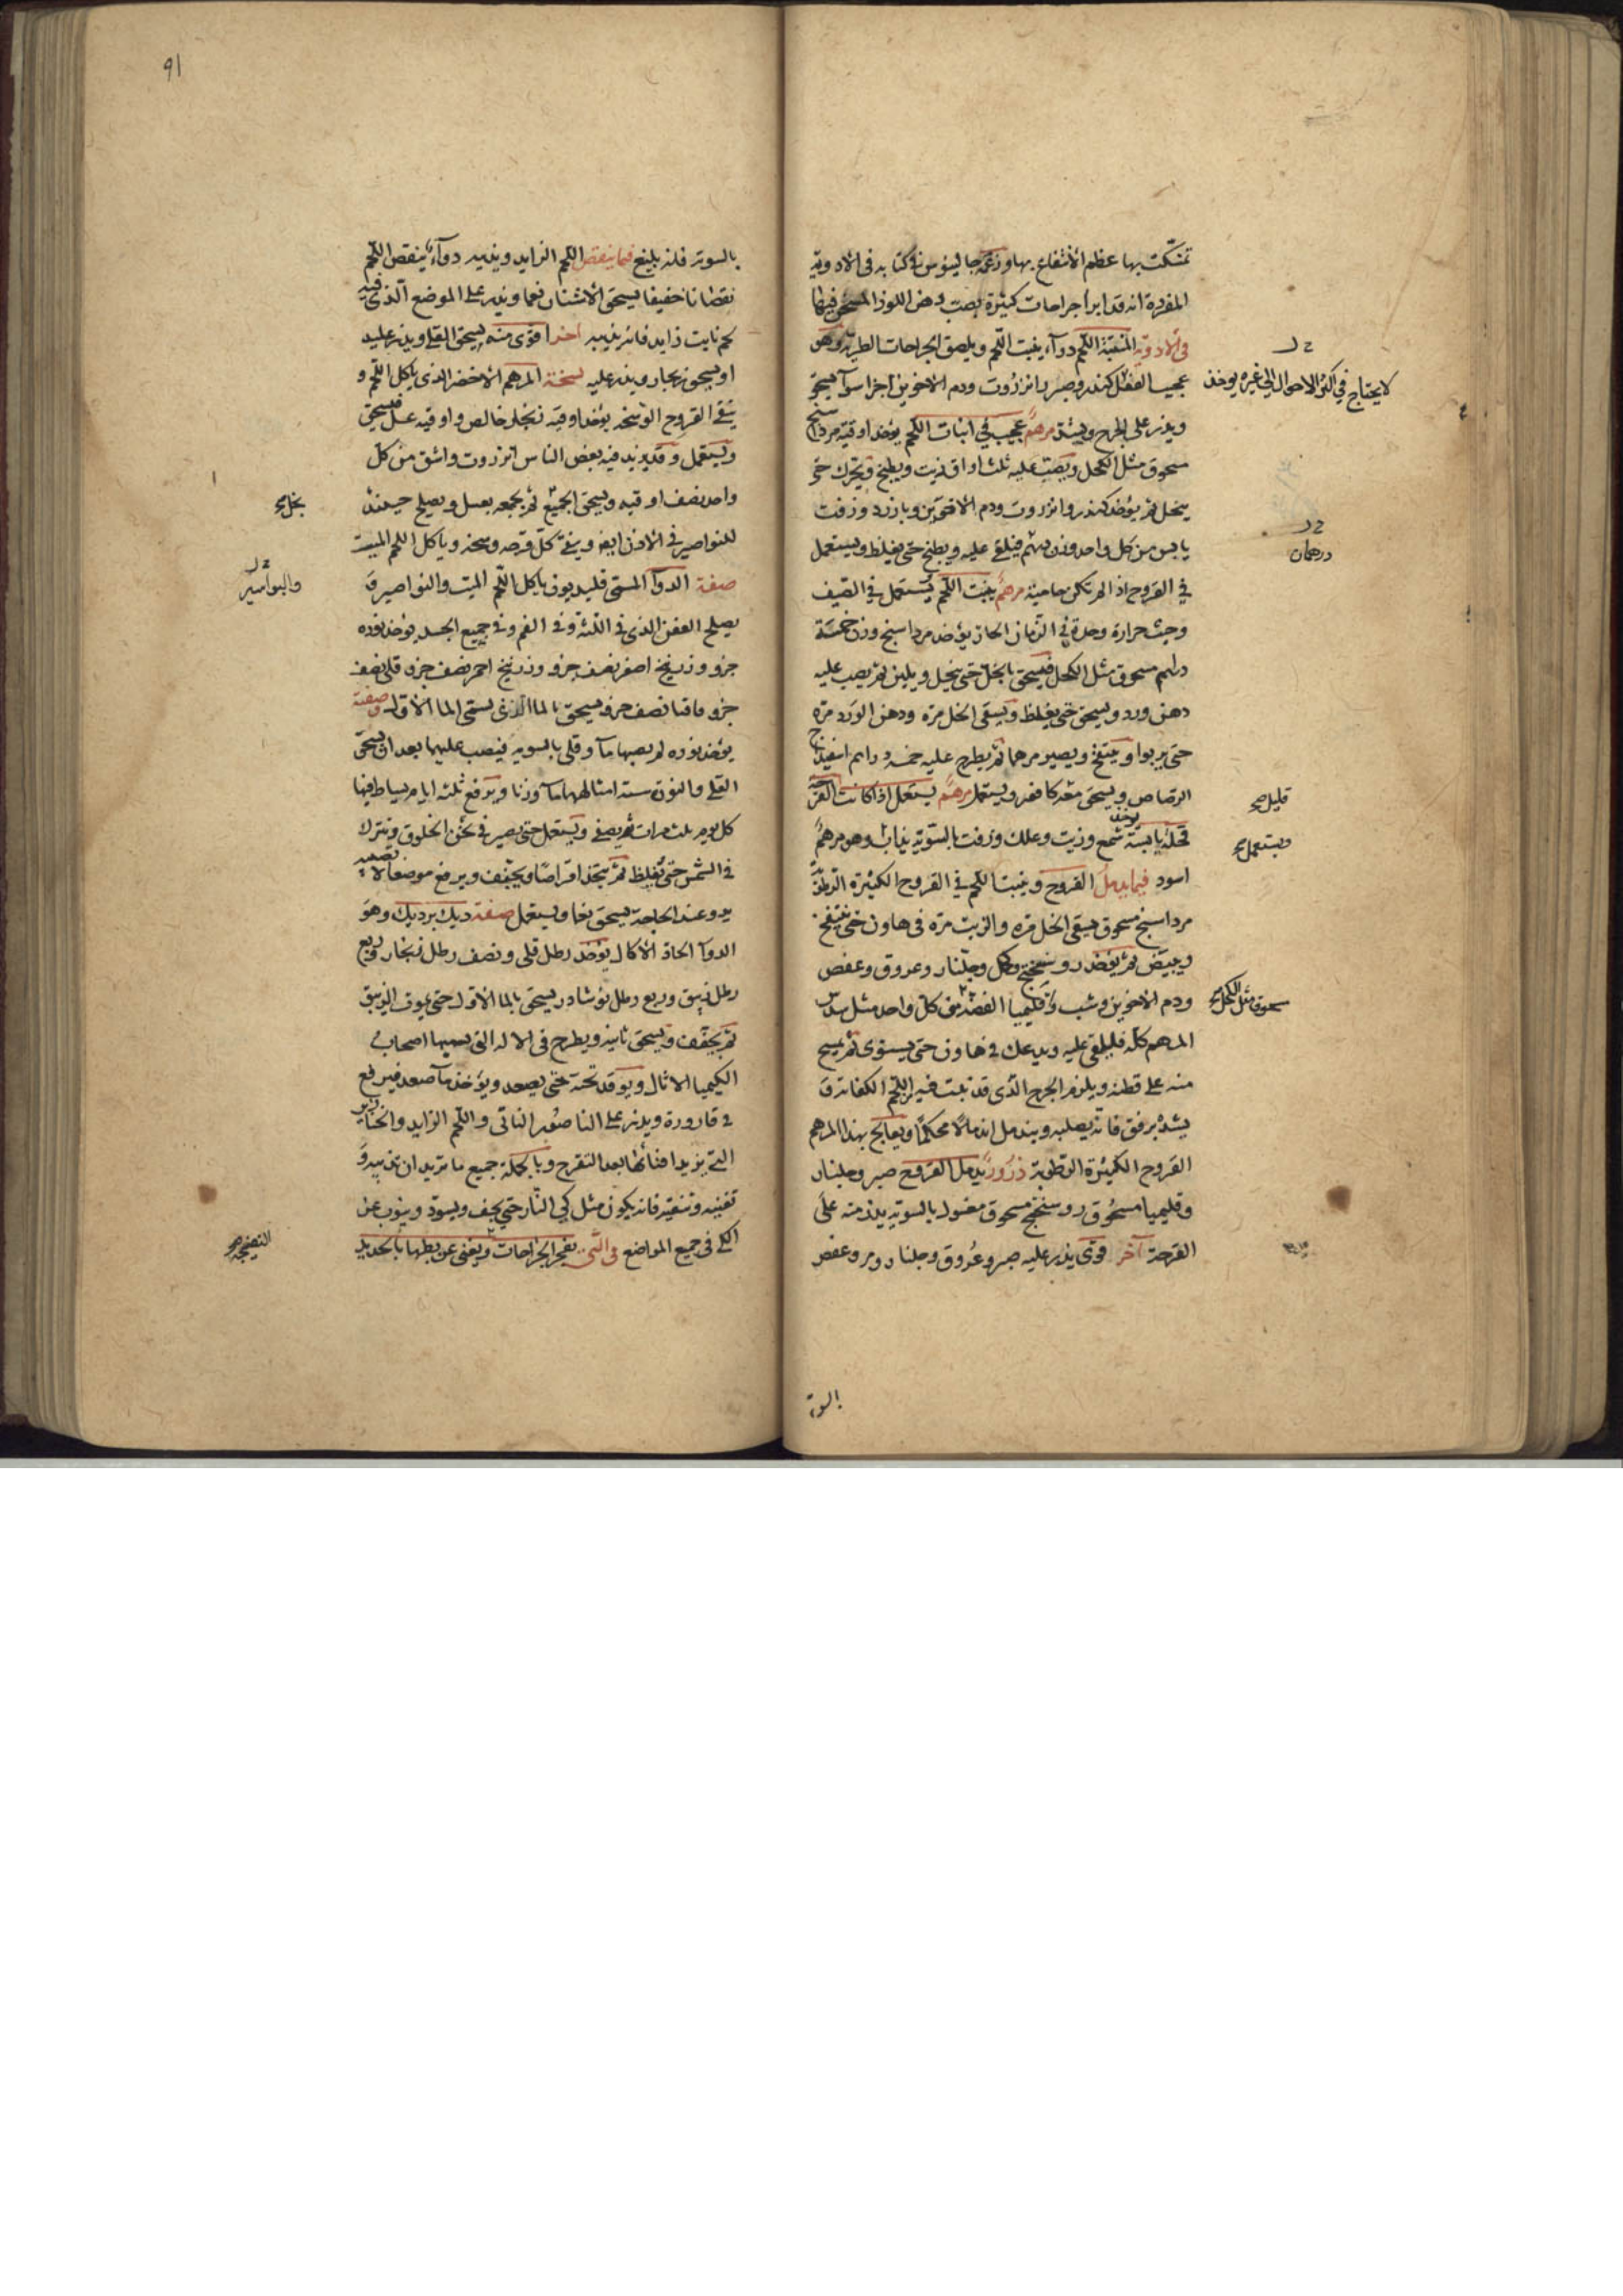 تمسكت بها عظم الانتفاع بها وزعم جالينوس في كتابه في الادوية
المفردة انه قد ابرا جراحات كثيرة بصب دهن اللوز المسخن فيها
في الادوية المنبتة اللحم دواء ينبت اللحم ويلصق الجراحات الطرية وهو
لا يحتاج في اكثر الاحوال الى غيره يوخذ
عجيب الفعل كندر وصبر وانزروت ودم الاخوين اجزا سوآ يسحق
ويذر على الجرح ويشد مرهم عجيب في انبات اللحم يوخذ اوقية مرداسنج
مسحوق مثل الكحل ويصب عليه ثلث اواق زيت ويطبخ ويحرك حتى
ينحل ثم يؤخذ كندر وانزروت ودم الاخوين وبارزد وزفت
يابس من كل واحد وزن درهم فيلقى عليه ويطبخ حتى يغلظ ويستعمل
درهمان
في القروح اذا لم تكن حامية مرهم ينبت اللحم يستعمل في الصيف
وحيث حرارة وحدة في الزمان الحار يؤخذ مرداسنج وزن خمسة
دراهم مسحوق مثل الكحل فيسحق بالخل حتى ينحل ويلين ثم يصب عليه
دهن ورد ويسحق حتى يغلظ ويسقى الخل مرة ودهن الورد مرة
حتى يربوا وينتفخ ويصير مرهما ثم يطرح عليه خمسة دراهم اسفيداج
الرصاص ويسحق معه كافور ويستعمل مرهم يستعمل اذا كانت القرحة
قليل صح
قحلة يابسة يوخذ شمع وزيت وعلك وزفت بالسوية يذاب وهو مرهم
ويستعمل صح
اسود فيما يدمل القروح وينبت اللحم في القروح الكثيرة الرطوبة
مرداسنج مسحوق يسقى الخل مرة والزيت مرة في هاون حتى ينتفخ
ويبيض ثم يؤخذ روسختج وكحل وجلنار وعروق وعفص
ودم الاخوين وشب وقليميا الفضة من كل واحد مثل سدس
مسحوق مثل الكحل صح
المرهم كله فليلقى عليه ويدعك في هاون حتى يستوى ثم يمسح
منه على قطنة ويلزم الجرح الذى قد نبت فيه اللحم الكفاية و
يشد برفق فانه يصلبه ويندمل اندمالا محكما ويعالج بهذا المرهم
القروح الكثيرة الرطوبة ذرور يدمل القروح صبر وجلنار
وقليميا مسحوق روسختج مسحوق مغسول بالسوية يذر منه على
القرحة آخر قوى يذر عليه صبر وعروق وجلنار ومر وعفص
بالسوية
91
بالسوية فانه بليغ فيما ينقص اللحم الزايد ويذيبه دوآء ينقص اللحم
نقصانا خفيفا يسحق الاشنان نعما ويذر على الموضع الذى فيه
لحم نابت زايد فانه يذيبه اخر اقوى منه يسحق القلى ويذر عليه
او يسحق زنجار ويذر عليه نسخة المرهم الاخضر الذى ياكل اللحم و
ينقى القروح الوسخة يوخذ اوقية زنجار خالص واوقية عسل فيسحق
ويستعمل وقد يزيد فيه بعض الناس انزروت واشق من كل
واحد نصف اوقية ويسحق الجميع ثم يجمعه بعسل ويصلح حينئذ
بخل صح
للنواصير في الاذن ايضا وينقى كل قرحة وسخة وياكل اللحم الميت
صفة الدوآ المسمى قلديقون ياكل اللحم الميت والنواصير و
والبواسير
يصلح العفن الذى في اللثة وفي الفم وفي جميع الجسد يوخذ نورة
جزو وزرنيخ اصفر نصف جزو وزرنيخ احمر نصف جزو قلى نصف
جزو فاقيا نصف جزو يسحق بالما الذى يسمى الما الاول وصفته
يؤخذ نورة لم يصبها مآ وقلى بالسوية فيصب عليهما بعد ان يسحق
القلى والنورة ستة امثالهما مآ وزنا ويرفع ثلثة ايام يساط فيها
كل يوم ثلث مرات ثم يصفى ويستعمل حتى يصير في ثخن الخلوق ويترك
في الشمس حتى يغلظ ثم يتخذ اقراصا ويجفف ويرفع موضعا لا يصيبه
ندو وعند الحاجة يسحق نعما ويستعمل صفة ديك برديك وهو
الدوآ الحاد الاكال يوخذ رطل قلى ونصف رطل زنجار وربع
رطل زيبق وربع رطل نوشادر يسحق بالما الاول حتى يموت الزيبق
ثم يجفف ويسحق ثانية ويطرح في الالة التى يسميها اصحاب
الكيميا الاثال ويوقد تحته حتى يصعد ويؤخذ ما صعد فيرفع
في قارورة ويذر على الناصور الناتى واللحم الزايد والخنازير
التى يزيد افناها بعد التقرح وبالجملة جميع ما تريد ان تذيبه و
تفنيه وتنقيه فانه يكون مثل كي النار حتى يجف ويسود وينوب عن
الكي في جميع المواضع في التى يفجر الجراحات ويغنى عن بطها بالحديد
النضيجة صح